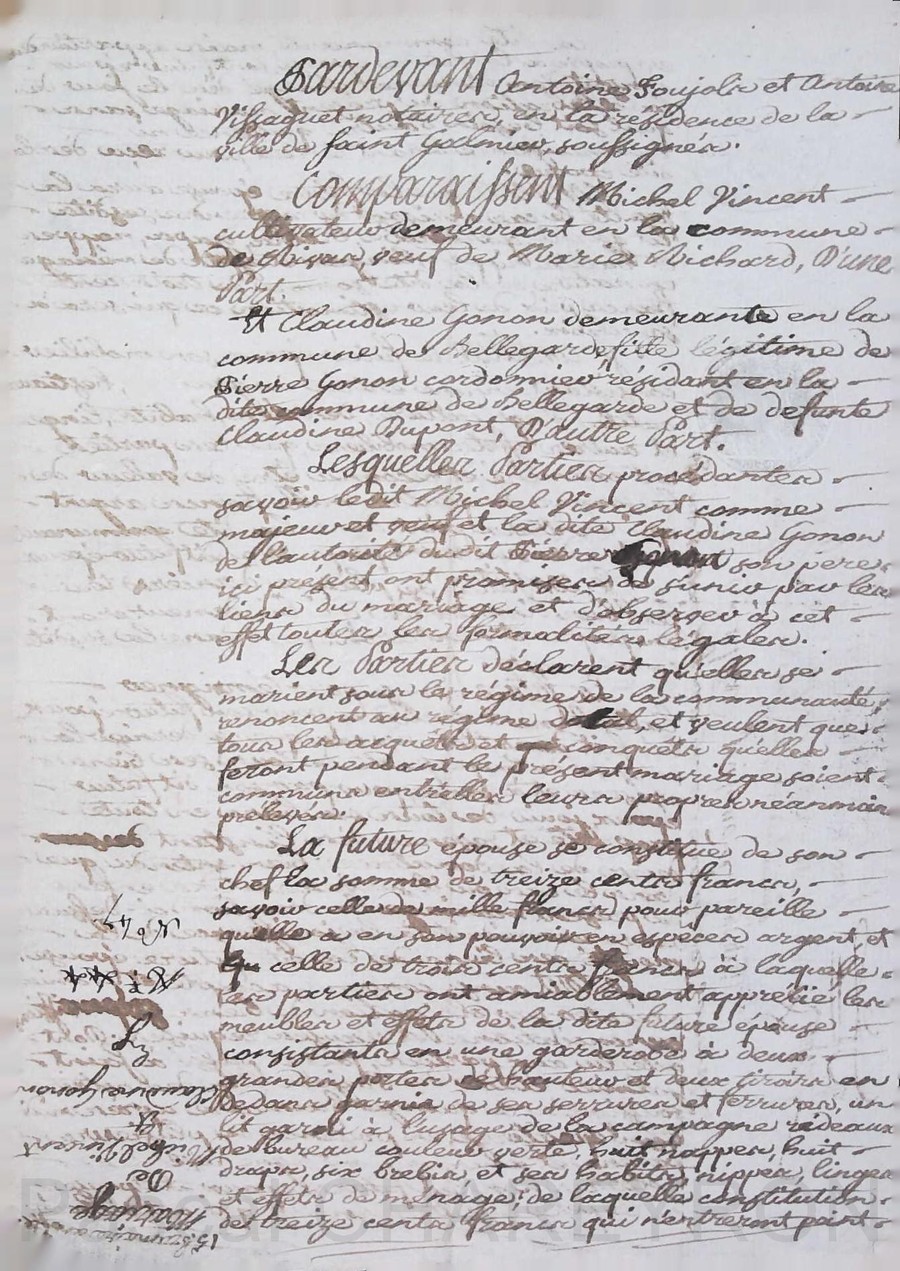 Pardevant Antoine Poujola et Antoine
Vissaguet notaires, en la résidence de la
ville de saint Galmier, soussignés.
Comparaissent Michel Vincent
cultivateur demeurant en la commune
de Rivas, veuf de Marie Richard, D'une
Part.
Et Claudine Gonon demeurante en la
commune de Bellegarde, fille légitime de
Pierre Gonon cordonnier résidant en la
dite commune de Bellegarde et de defunte
Claudine Dupont, D'autre Part.
Lesquelles Parties procédantes
savoir ledit Michel Vincent comme
majeur et veuf et la dite Claudine Gonon
de l'autorité dudit Pierre Gonon son père
ici présent, ont promises de s'unir par les
liens du mariage et d'observer à cet
effet toutes les formalités légales.
Les Parties déclarent qu'elles se
marient sous le régime de la communauté,
renoncent au régime dotal, et veulent que
tous les acquêts et conquêts qu'elles
feront pendant le présent mariage soient
communs entr'elles leurs propres néanmoins
prélevés.
La future épouse se constitue de son
chef la somme de treize cents francs,
savoir celle de mille francs pour pareille
quelle a en son pouvoir en espèces argent, et
celle de trois cents francs à laquelle
les parties ont amiablement apprétié les
meubles et effets de la dite future épouse
consistants en une garderobe à deux
grandes portes de hauteur et deux tiroirs en
dedans garnie de ses serrures et ferrures, un
lit garni à l'usage de la campagne rideaux
de bureau couleur verte, huit nappes, huit
draps, six brebis, et ses habits, nippes, linges
et effets de ménage; de laquelle constitution
de treize cents francs qui n'entreront point
N° 47
Mariage
De
Michel Vincent
Et
Gonon